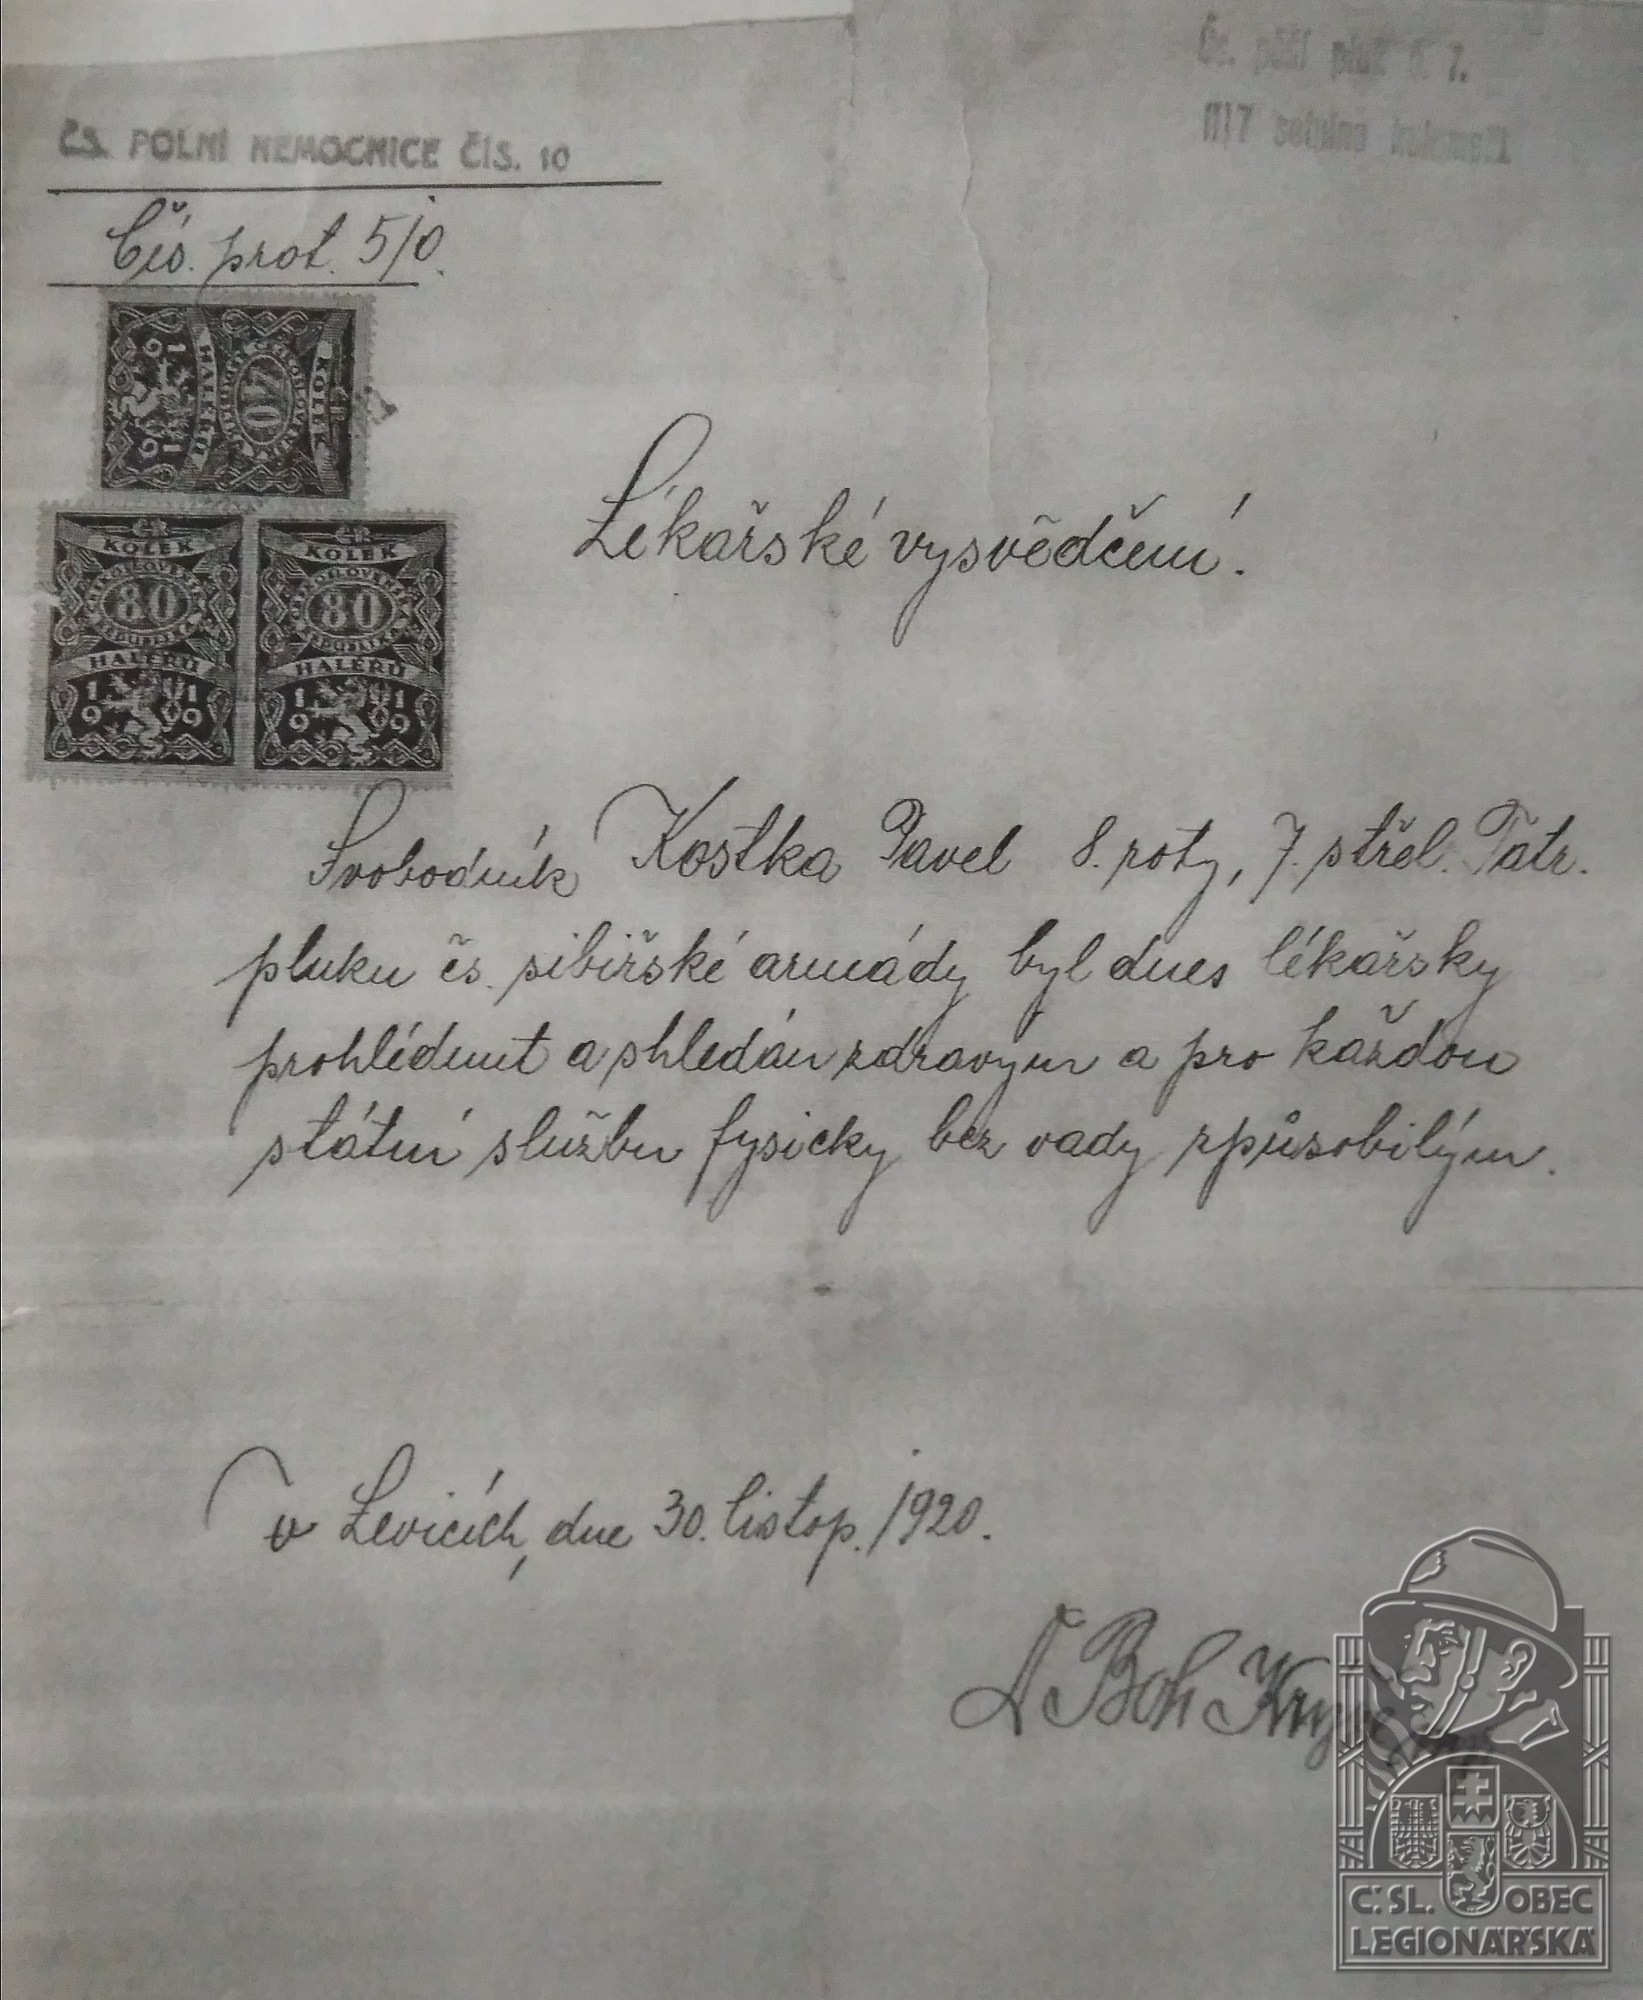 Čs. pěší pluk č. 7.
ČS. POLNÍ NEMOCNICE ČÍS. 10
Čís. prot. 5/0.
KOLEK
40
HALÉŘŮ
1919
ČR
KOLEK
ČESKOSLOVENSKÁ REPUBLIKA
80
HALÉŘŮ
1919
ČR
KOLEK
ČESKOSLOVENSKÁ REPUBLIKA
80
HALÉŘŮ
1919
Lékařské vysvědčení.
Svobodník Kostka Pavel 8. roty, 7. střel. Tatr.
pluku čs. sibiřské armády byl dnes lékařsky
prohlédnut a shledán zdravým a pro každou
státní službu fysicky bez vady způsobilým.
v Levicích, dne 30. listop. 1920.
Dr Boh
Č.SL. OBEC
LEGIONÁŘSKÁ